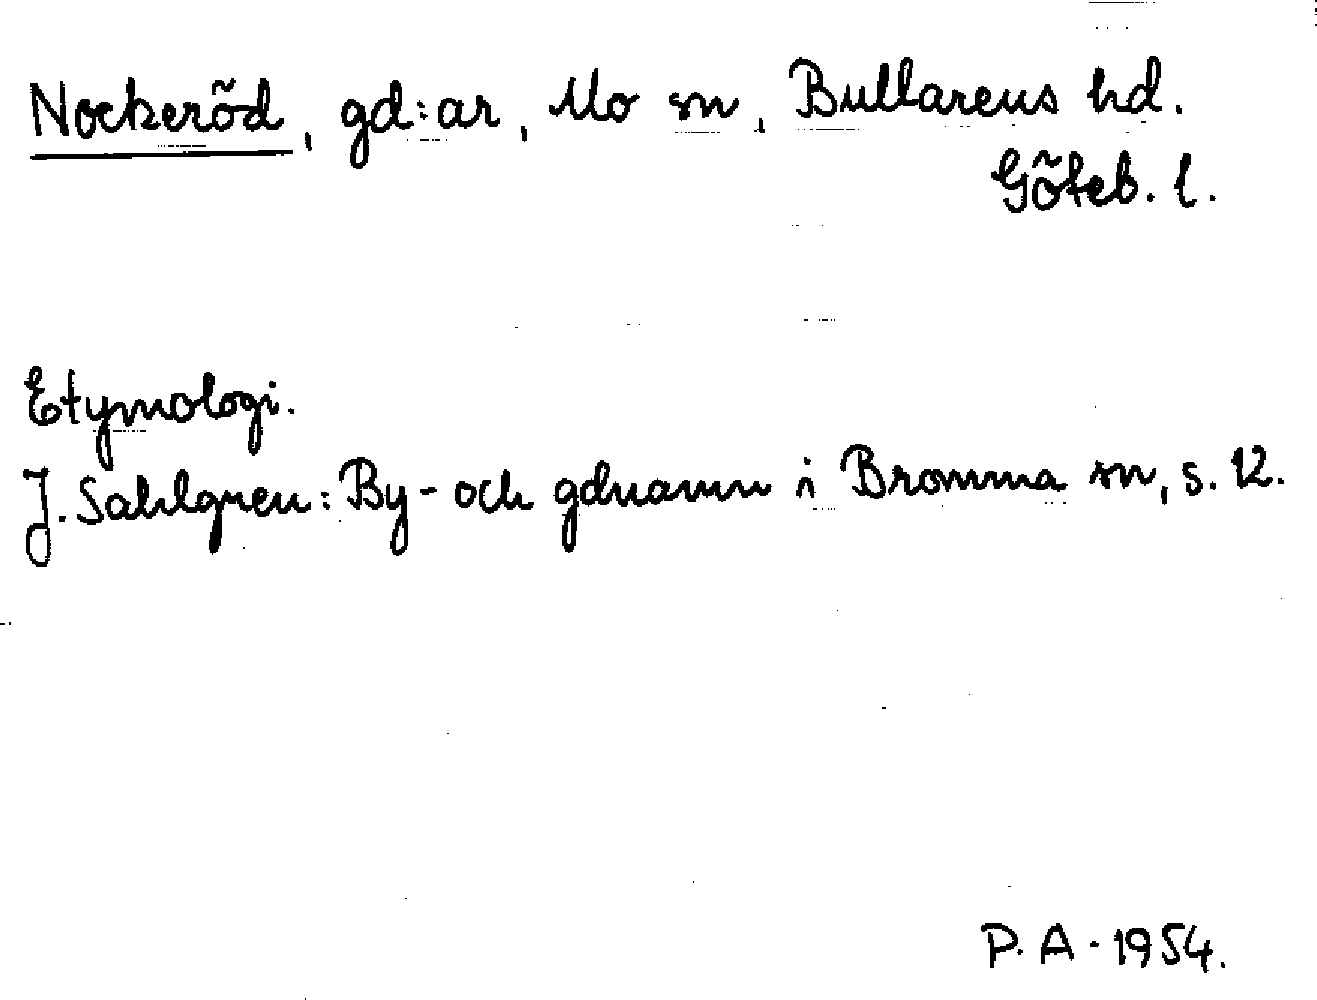 Nockeröd, gd:ar, Mo sn, Bullarens hd.
Göteb. l.
Etymologi.
J. Sahlgren: By- och gdnamn i Bromma sn, s. 12.
P. A. 1954.